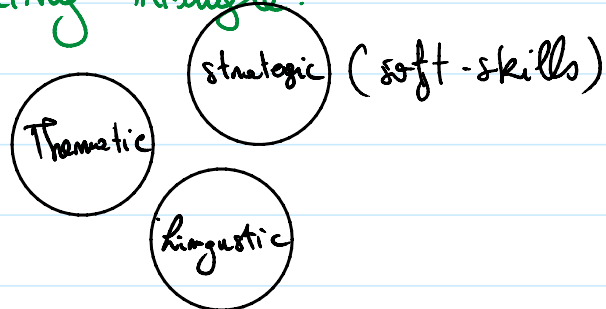 strategic (soft-skills)
Thematic
Lingustic